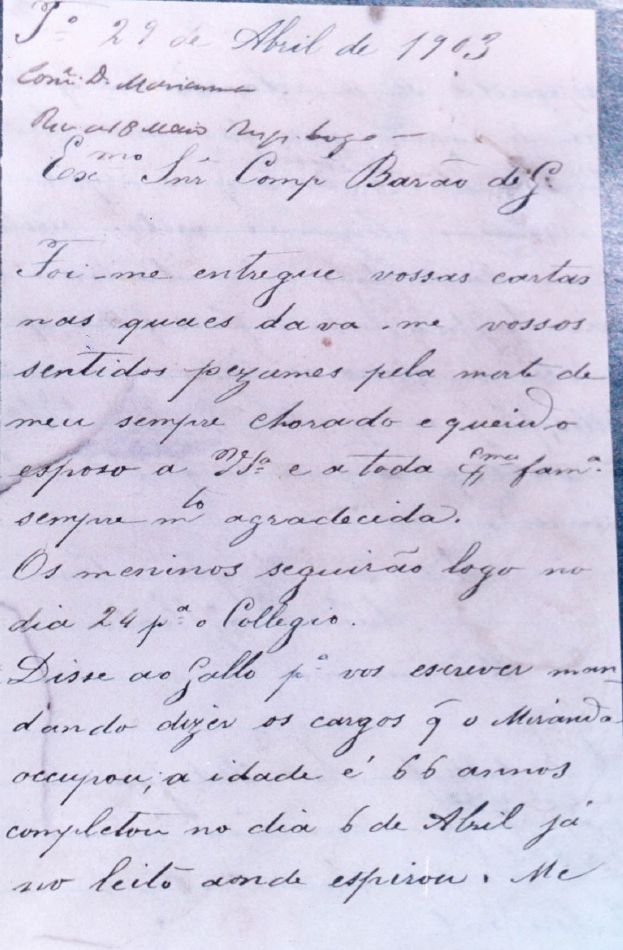 Jº 29 de Abril de 1903
Comª. D. Marianna
Rec. a 18 Maio Resp. logo —
Exmo Snr Comp Barão de G.
Foi-me entregue vossas cartas
nas quaes dava-me vossos
sentidos pezames pela morte de
meu sempre chorado e querido
esposo a VSª e a toda Exma famª.
sempre mto agradecida.
Os meninos seguirão logo no
dia 24 pª o Collegio.
Disse ao Gallo pª vos escrever man
dando dizer os cargos q̃ o Miranda
occupou; a idade é 66 annos
completou no dia 6 de Abril já
no leito aonde espirou. Me